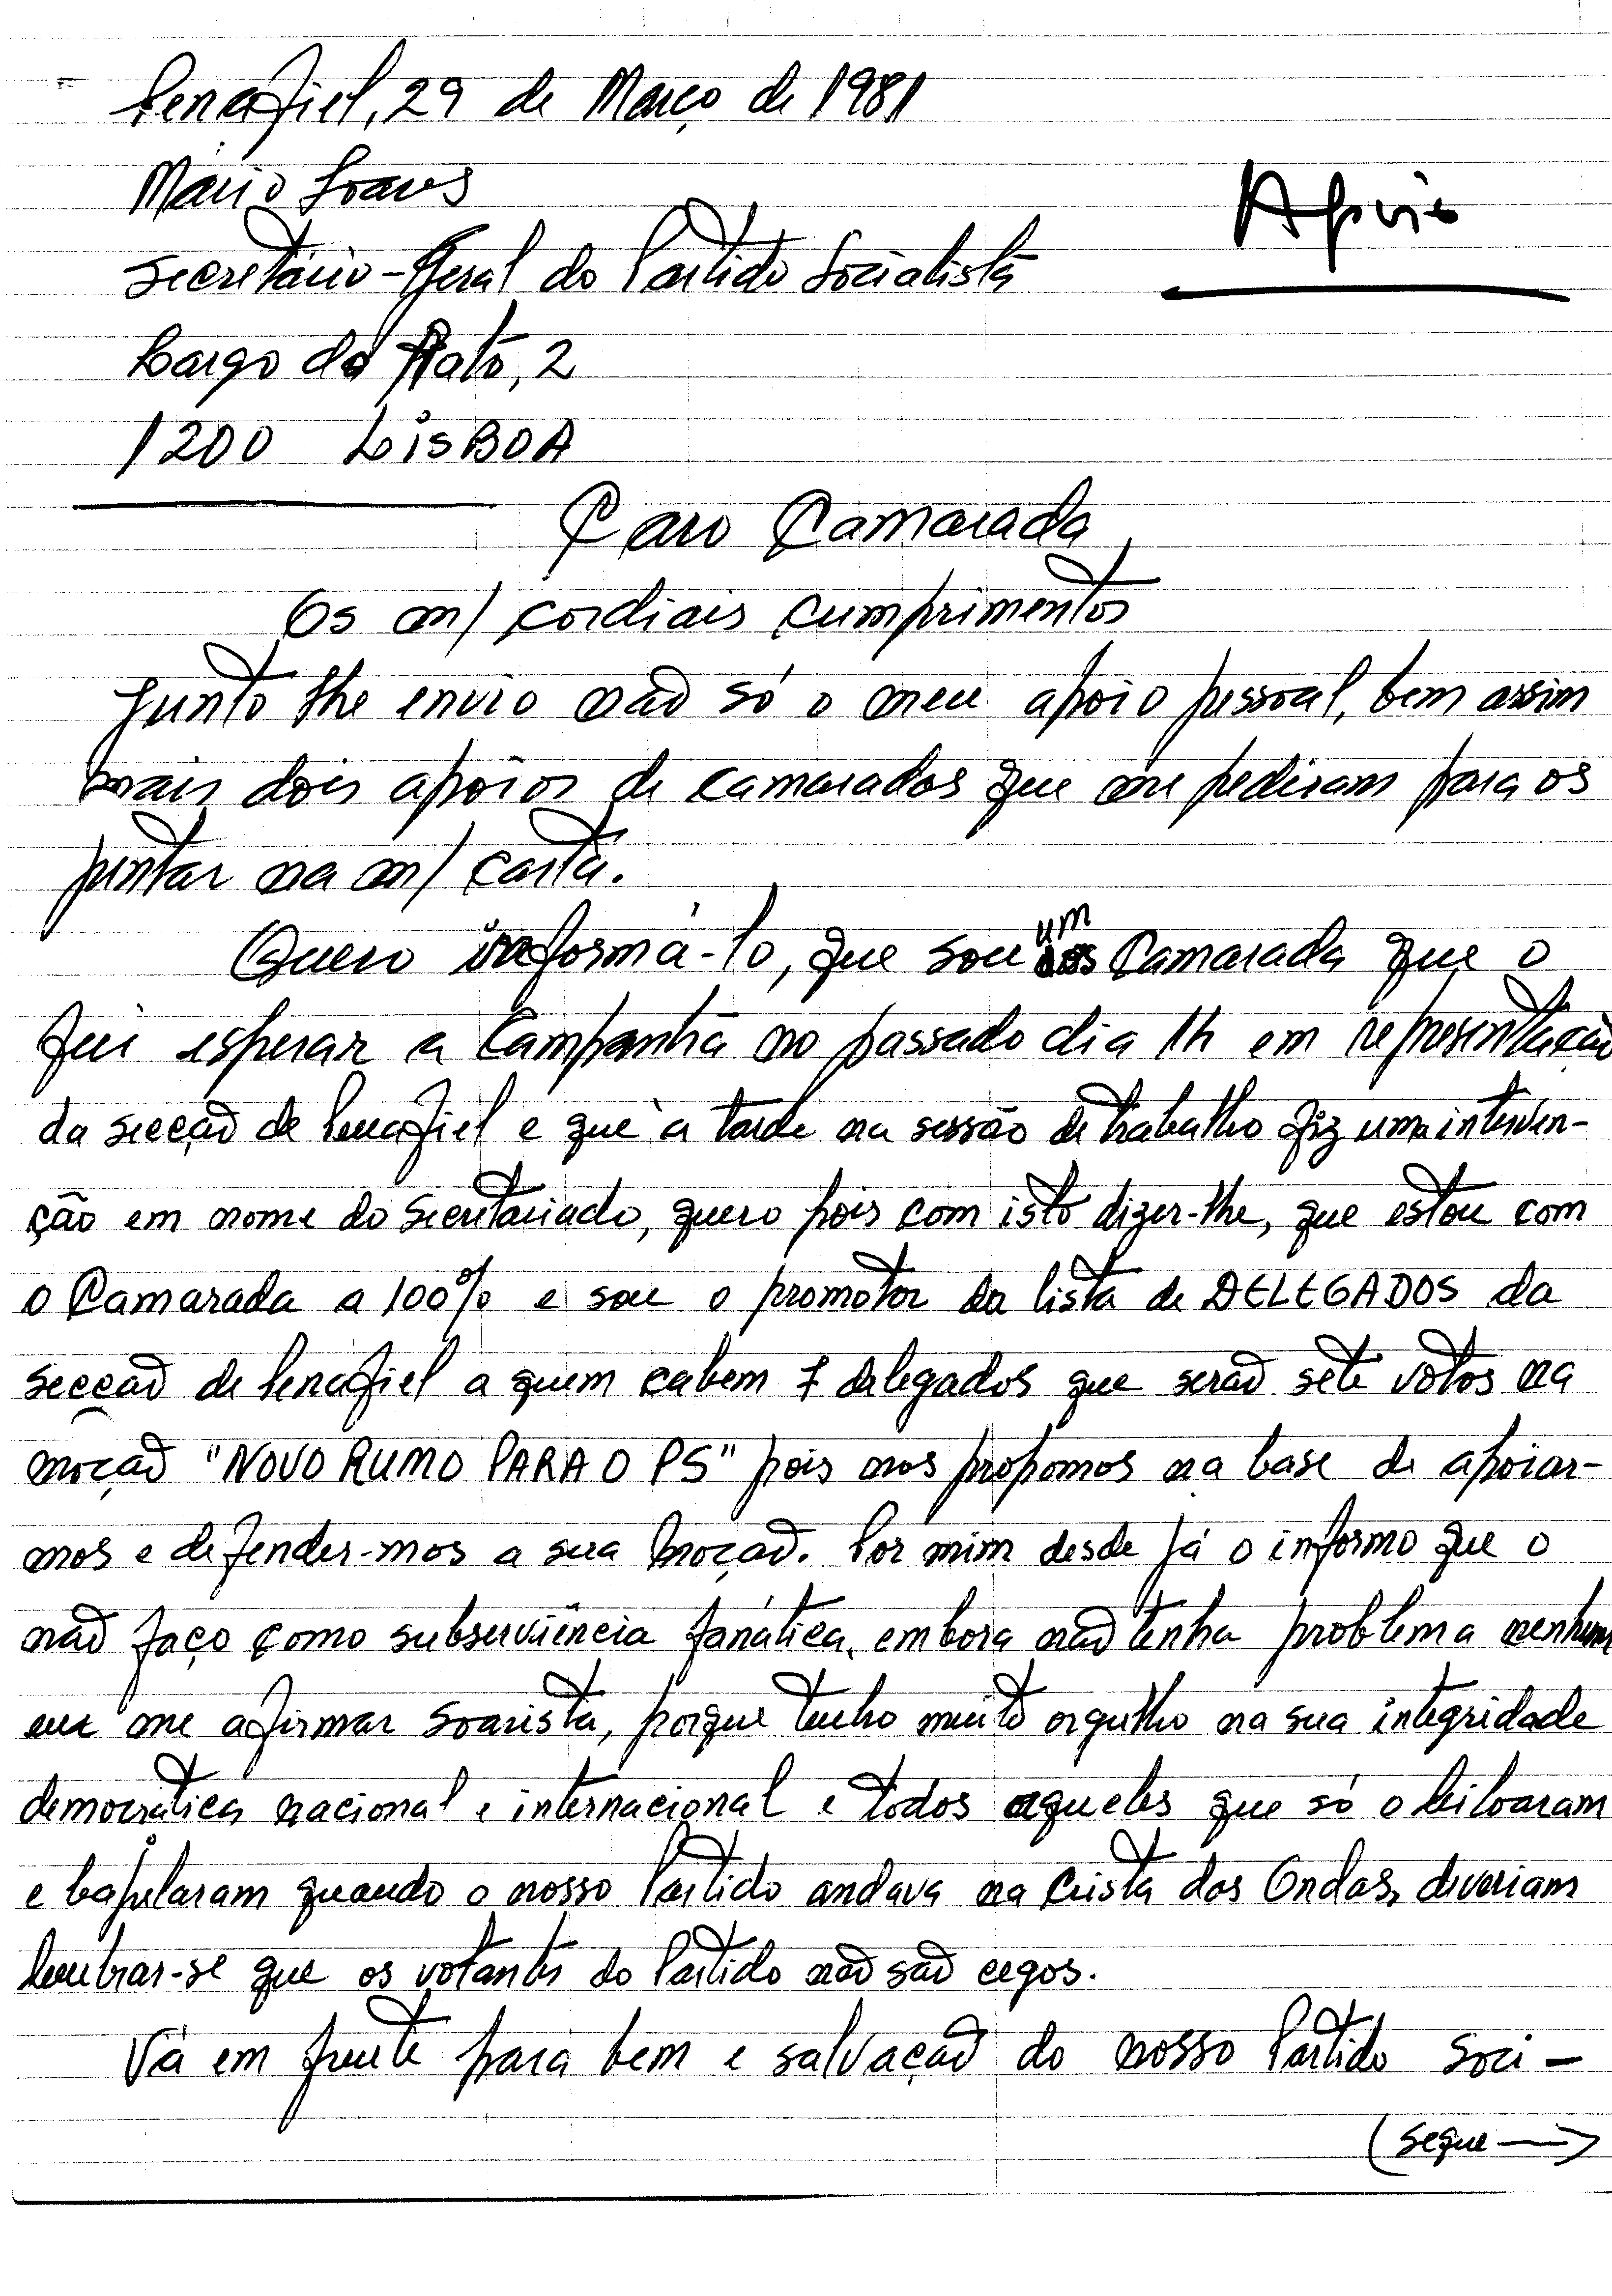 Penafiel, 29 de Março de 1981
Mário Soares
Apoio
Secretário-Geral do Partido Socialista
Largo do Rato, 2
1200 LISBOA
Caro Camarada
Os m/ cordiais cumprimentos
Junto lhe envio não só o meu apoio pessoal, bem assim
mais dois apoios de camaradas que me pediram para os
juntar na m/ carta.
Quero informá-lo, que sou um Camarada que o
fui esperar a Campanhã no passado dia 14 em representação
da secção de Penafiel e que à tarde na sessão de trabalho fiz uma interven-
ção em nome do Secretariado, quero pois com isto dizer-lhe, que estou com
o Camarada a 100% e sou o promotor da lista de DELEGADOS da
secção de Penafiel a quem cabem 7 delegados que serão sete votos na
moção "NOVO RUMO PARA O PS" pois nos propomos na base de apoiar-
mos e defender-mos a sua moção. Por mim desde já o informo que o
não faço como subserviência fanática, embora não tenha problema nenhum
em me afirmar soarista, porque tenho muito orgulho na sua integridade
democrática nacional e internacional e todos aqueles que só o
e bajularam quando o nosso Partido andava na Crista das Ondas, deveriam
lembrar-se que os votantes do Partido não são cegos.
Vá em frente para bem e salvação do nosso Partido Soci-
(segue →